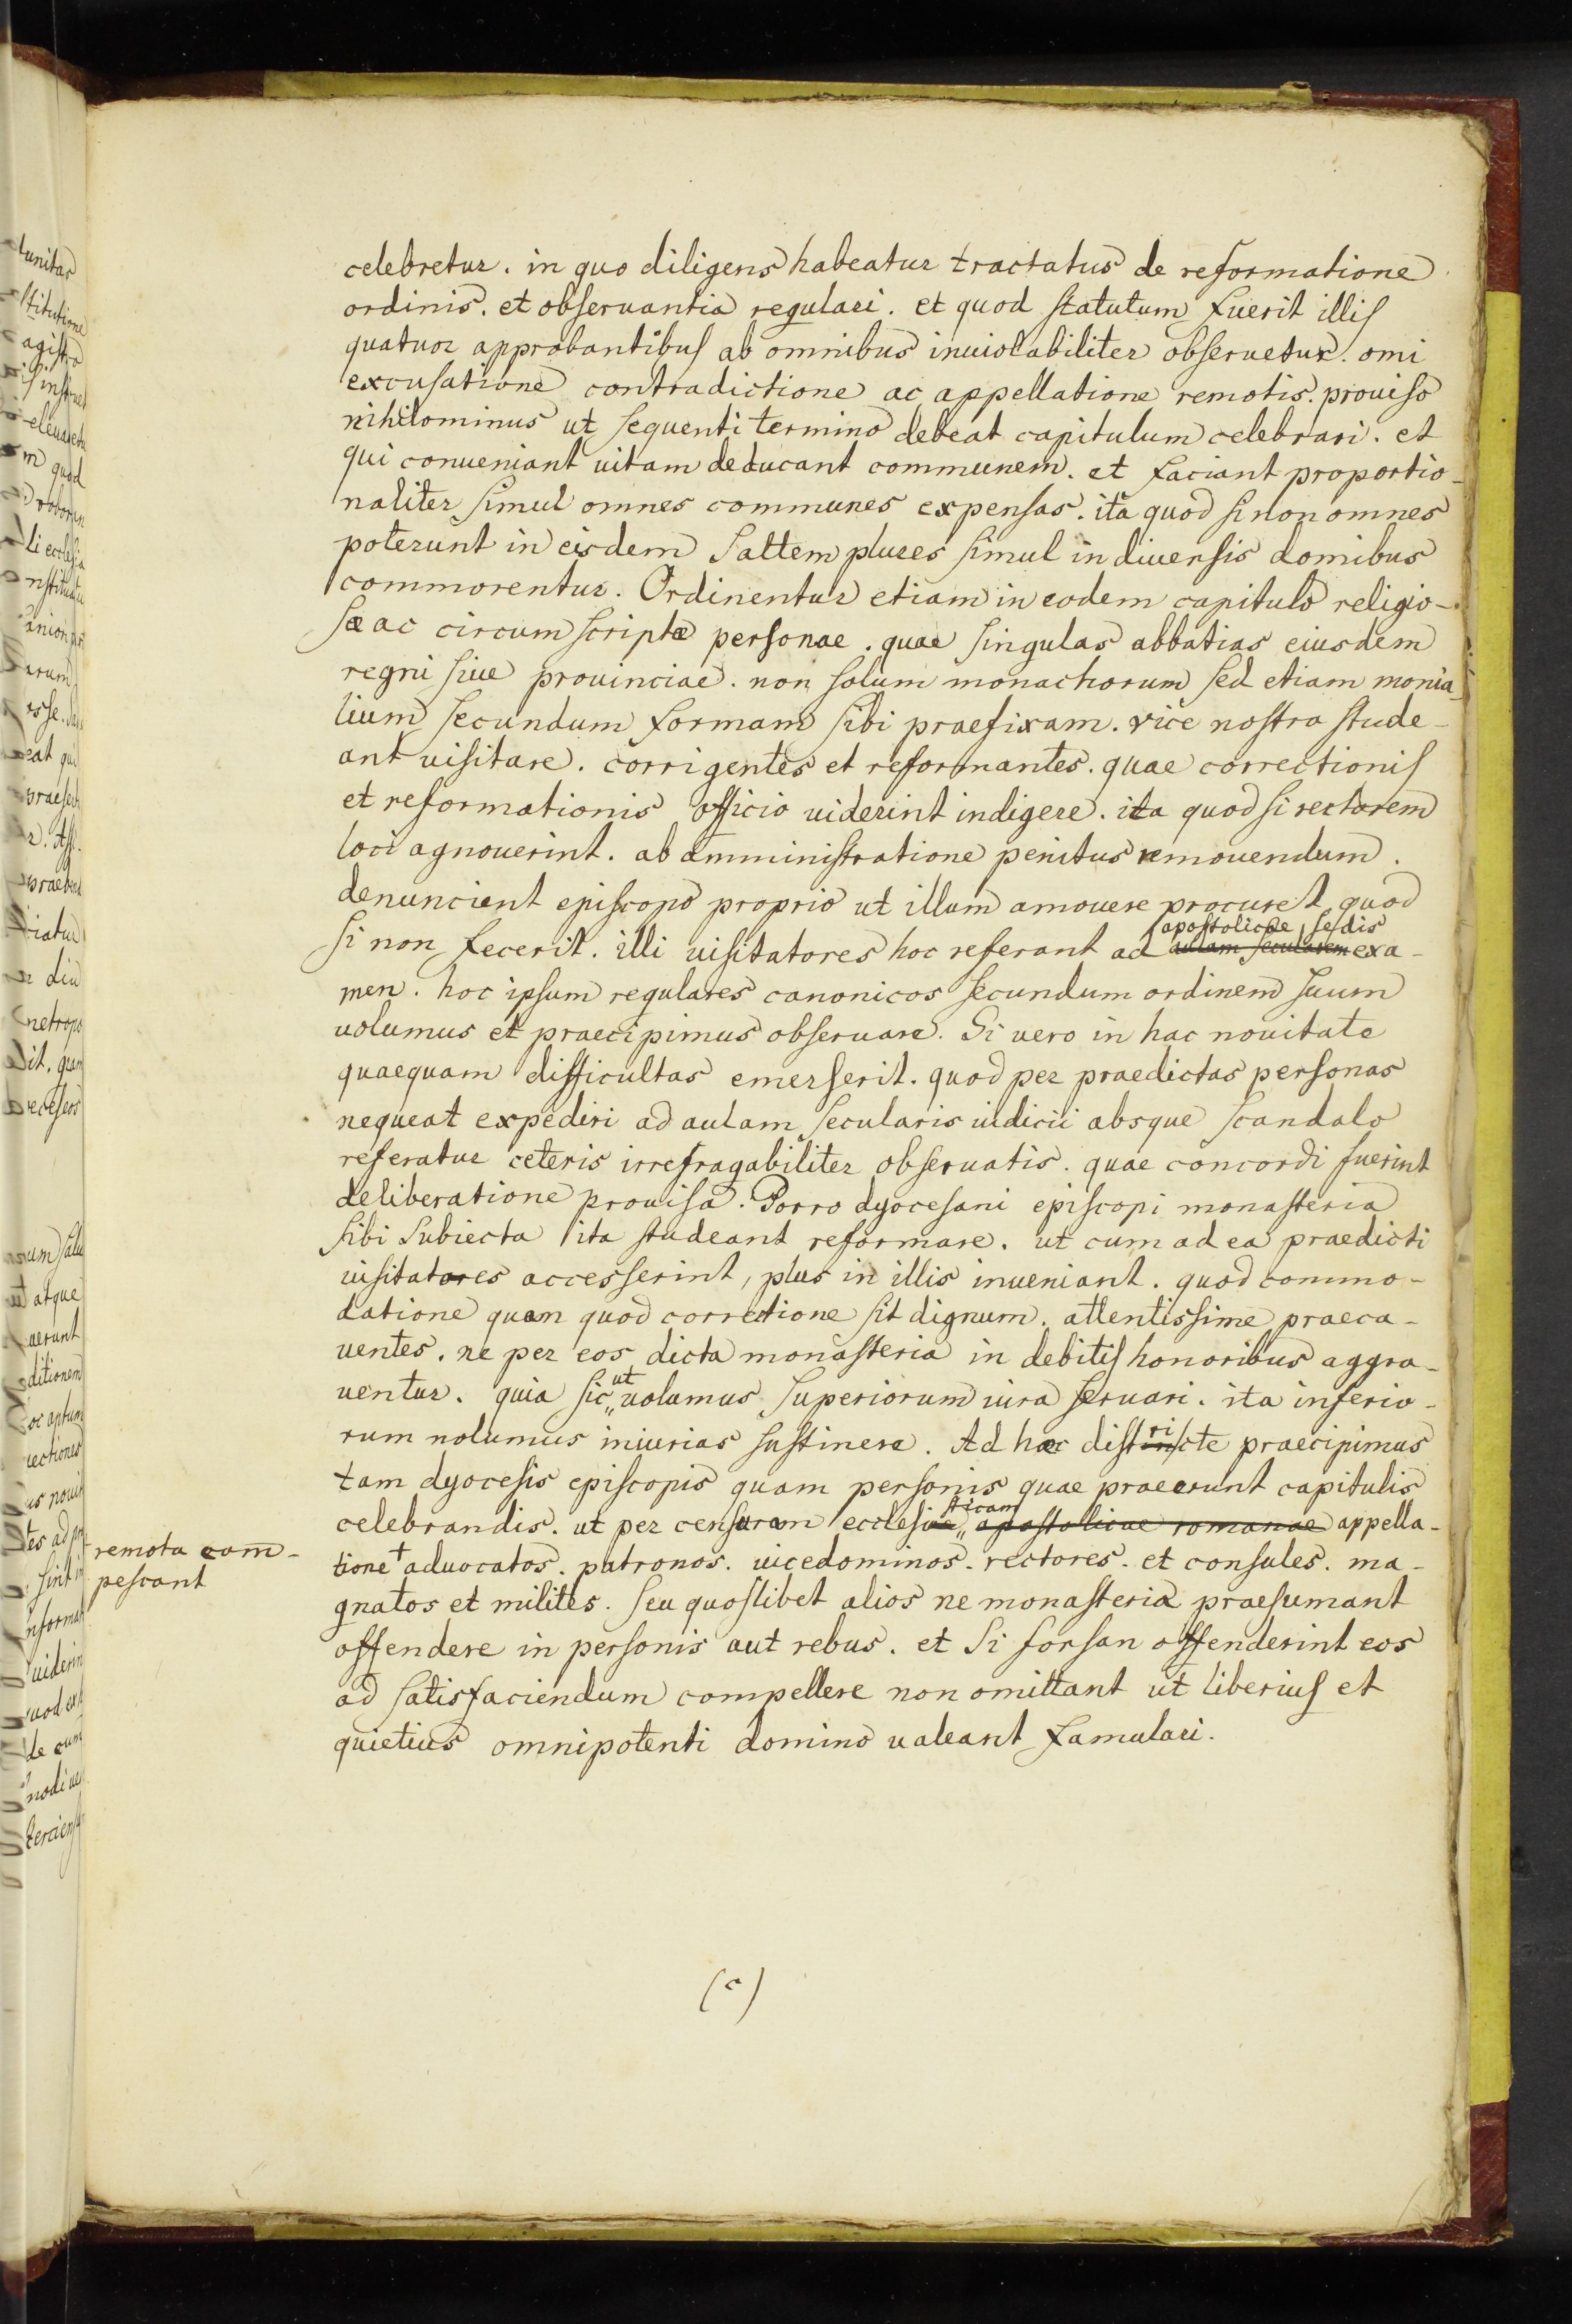 celebretur. in quo diligens habeatur tractatus de reformatione
ordinis. et obseruantia regulari. et quod statutum fuerit illis
quatuor approbantibus ab omnibus inuiolabiliter obseruetur. omi
excusatione contradictione ac appellatione remotis. prouiso
nihilominus ut sequenti termino debeat capitulum celebrari. et
qui conueniant uitam deducant communem. et faciant proportio-
naliter simul omnes communes expensas. ita quod si non omnes
poterunt in eisdem saltem plures simul in diuersis domibus
commorentur. Ordinentur etiam in eodem capitulo religio-
sæ ac circumscriptæ personae. quae singulas abbatias eiusdem
regni siue prouinciae. non solum monachorum sed etiam monia-
lium secundum formam sibi praefixam. vice nostra stude-
ant uisitare. corrigentes et reformantes. quae correctionis
et reformationis officio uiderint indigere. ita quod si rectorem
loci agnouerint. ab amministratione penitus remouendum.
denuncient episcopo proprio ut illum amouere procuret quod
apostolicae sedis
si non fecerit. illi uisitatores hoc referant ad aulam secularem exa-
men. hoc ipsum regulares canonicos secundum ordinem suum
uolumus et praecipimus obseruare. Si vero in hac nouitate
quaequam difficultas emerserit. quod per praedictas personas
nequeat expediri ad aulam secularis iudicii absque scandalo
referatur ceteris irrefragabiliter obseruatis. quae concordi fuerint
deliberatione prouisa. Porro dyocesani episcopi monasteria
sibi subiecta ita studeant reformare. ut cum ad ea praedicti
uisitatores accesserint, plus in illis inueniant. quod commo-
datione quam quod correctione sit dignum. attentissime praeca-
uentes. ne per eos dicta monasteria in debitis honoribus aggra-
ut
uentur. quia sic,, uolumus superiorum iura seruari. ita inferio-
ri
rum nolumus iniurias sustinere. Ad hæc distincte praecipimus
tam dyocesis episcopis quam personis quae praeerunt capitulis
sticam
celebrandis. ut per censuram ecclesiae,, apostolicae romanae appella-
tione + aduocatos. patronos. uicedominos. rectores. et consules. ma-
remota com-
pescant
gnatos et milites. seu quoslibet alios ne monasteria praesumant
offendere in personis aut rebus. et si forsan offenderint eos
ad satisfaciendum compellere non omittant ut liberius et
quietius omnipotenti domino ualeant famulari.
(c)